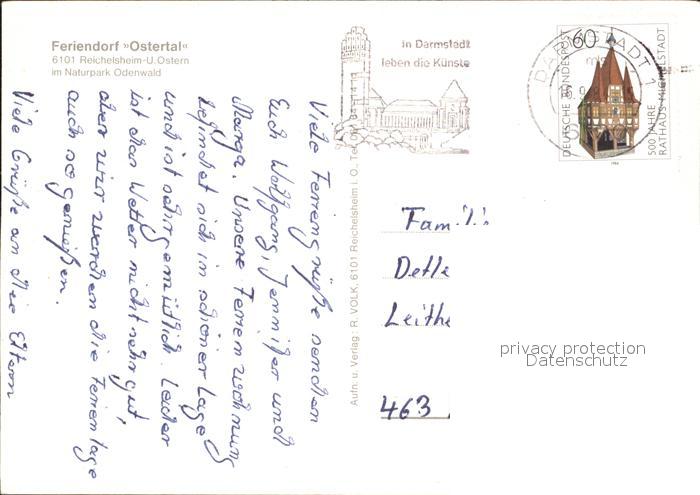 Feriendorf »Ostertal«
6101 Reichelsheim-U.Ostern
im Naturpark Odenwald
In Darmstadt
leben die Künste
DARMSTADT 1
60
DEUTSCHE BUNDESPOST
500 JAHRE
RATHAUS MICHELSTADT
Viele Feriengrüße senden
Euch Wolfgang, Jennifer und
Marga. Unsere Ferienwohnung
befindet sich in schöner Lage
und ist sehr gemütlich. Leider
ist das Wetter nicht sehr gut,
aber wir werden die Ferientage
auch so genießen.
Viele Grüße an die Eltern
Aufn. u. Verlag: R. VOLK, 6101 Reichelsheim i. O., Tel.
Fam
Detle
Leithe
463
privacy protection
Datenschutz